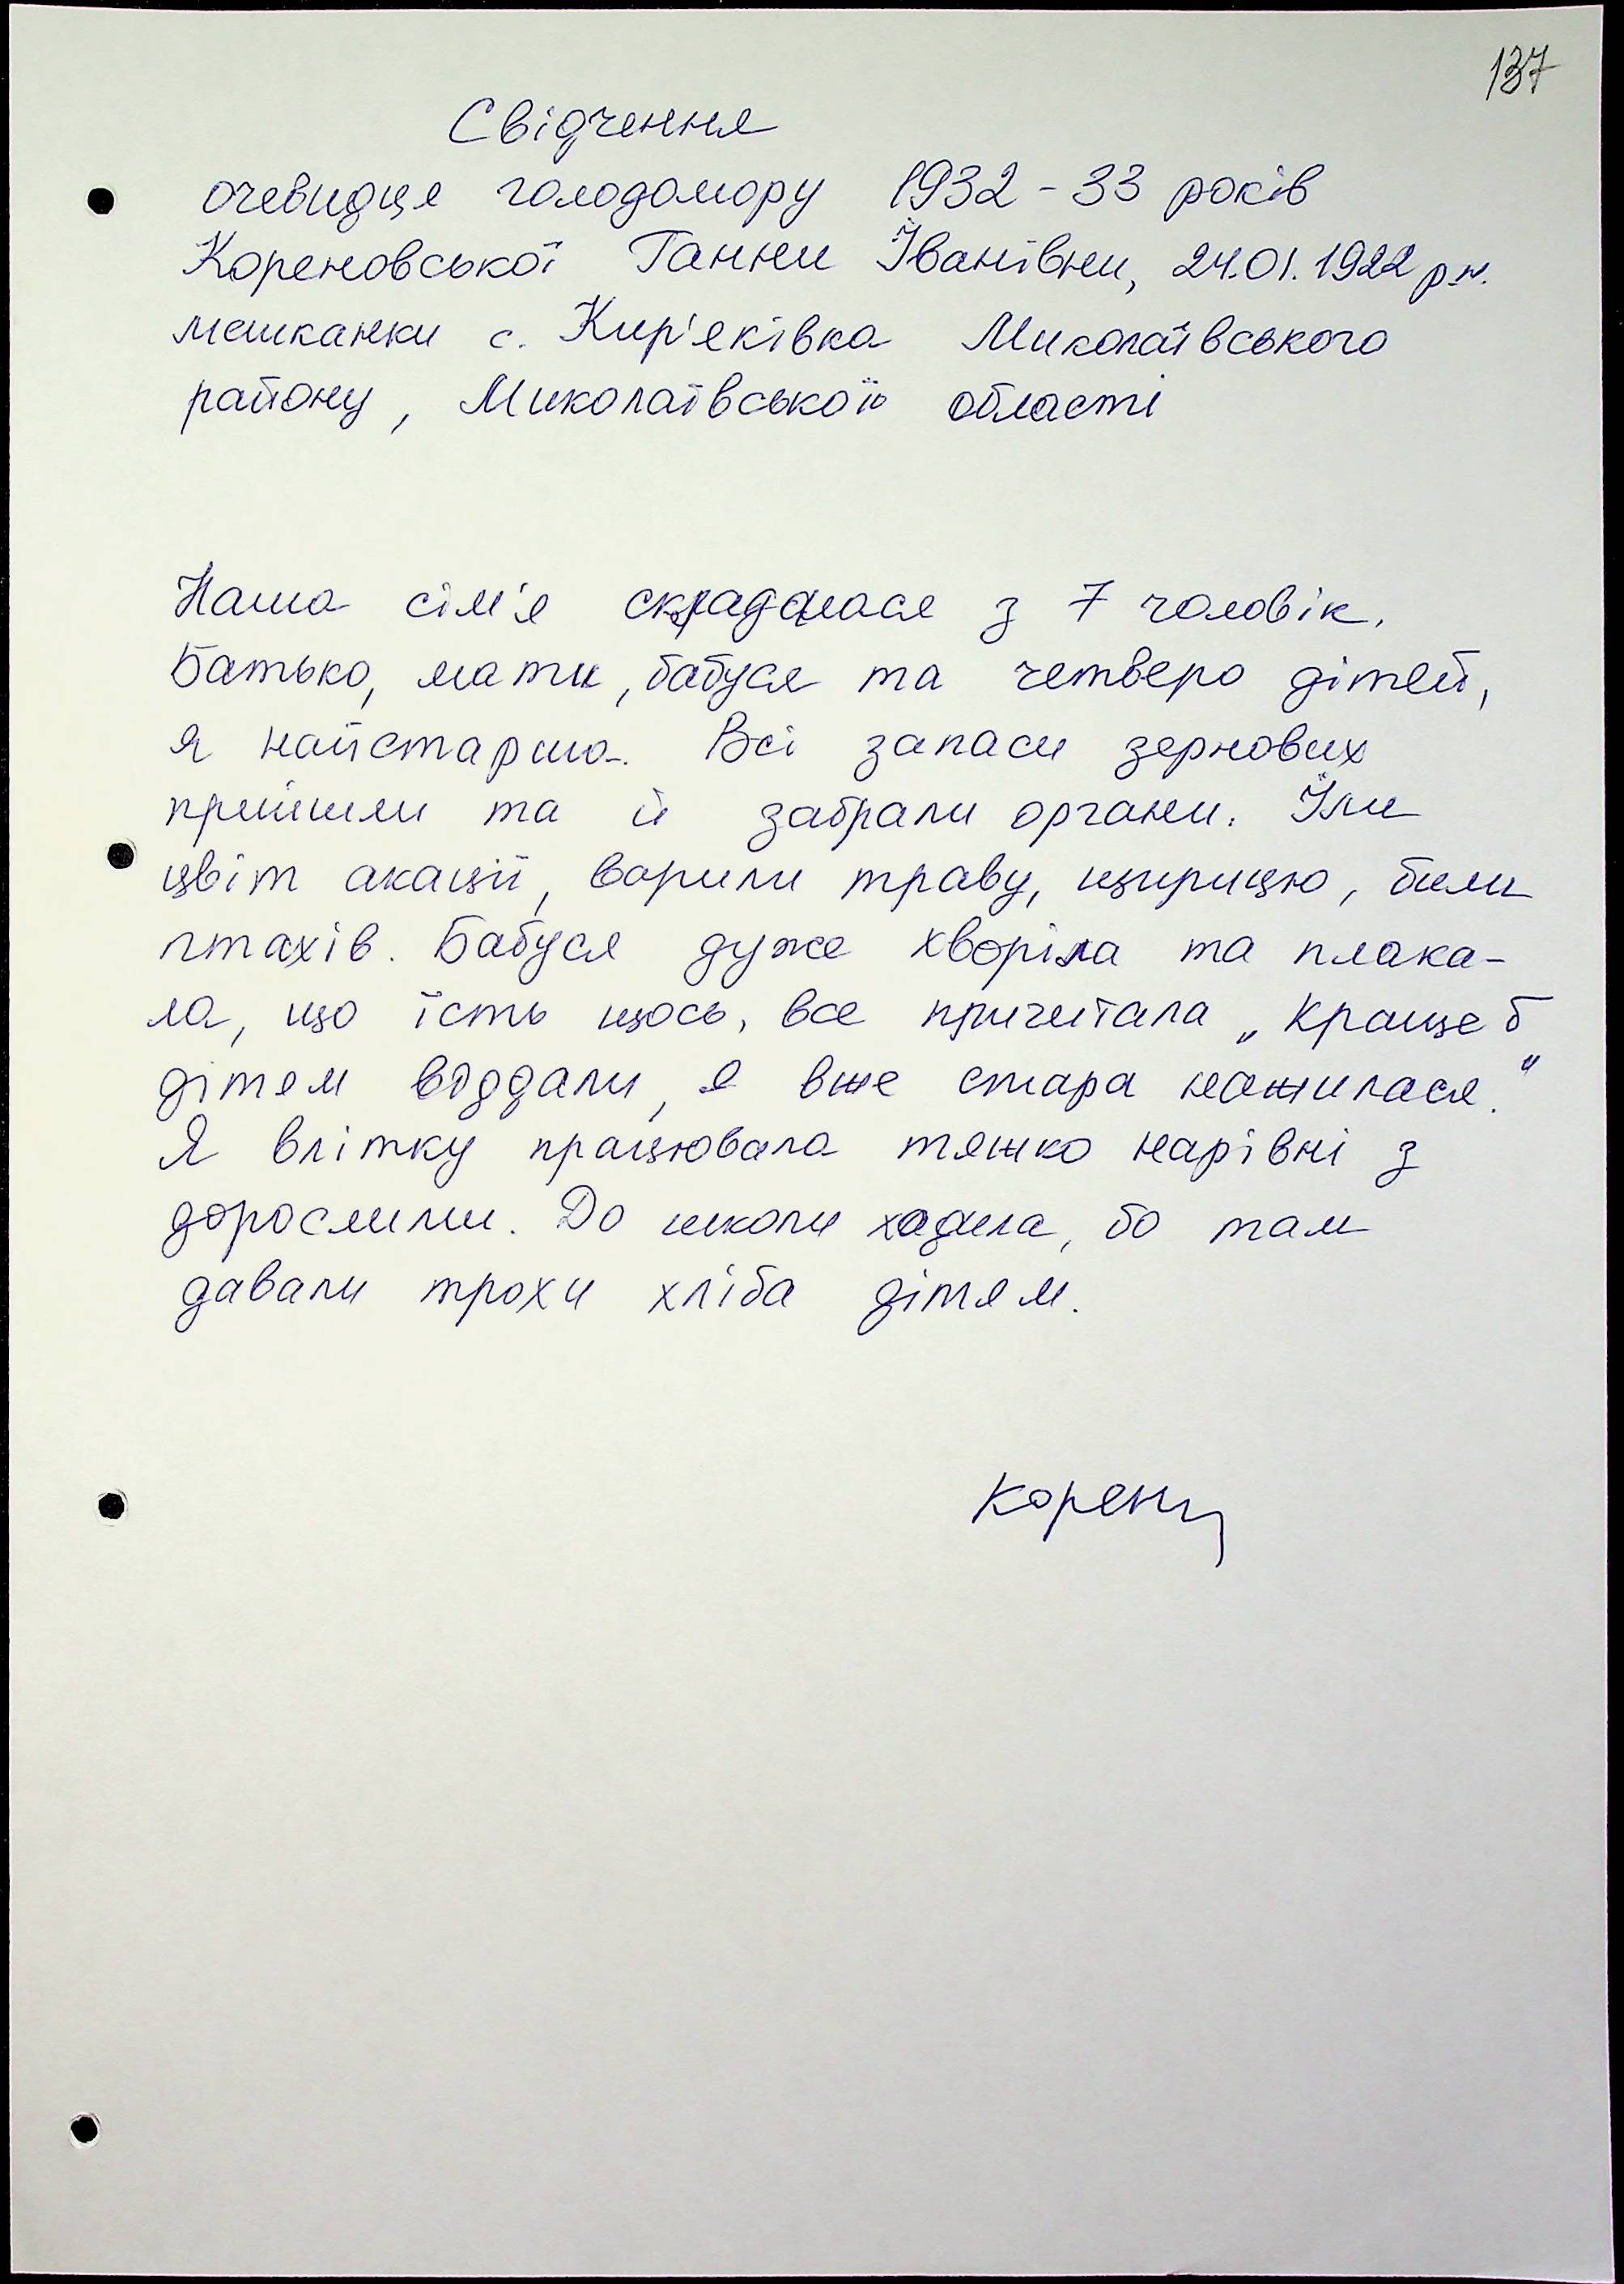 137
Свідчення
очевидця голодомору 1932-33 років
Кореновської Ганни Іванівни, 24.01.1922 р.н.
мешканки с. Кир'яківка Миколаївського
району, Миколаївської області
Наша сім'я складалася з 7 чоловік.
Батько, мати, бабуся та четверо дітей,
я найстарша. Всі запаси зернових
прийшли та й забрали органи. Їли
цвіт акації, варили траву, щирицю, били
птахів. Бабуся дуже хворіла та плака-
ла, що їсть щось, все причитала „Краще б
дітям віддали, я вже стара нажилася."
Я влітку працювала тяжко нарівні з
дорослими. До школи ходила, бо там
давали трохи хліба дітям.
Корен